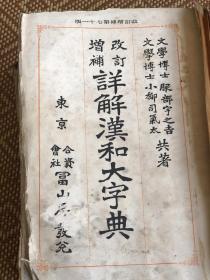 版一十七第補增訂改
文學博士服部宇之吉
文學博士小柳司氣太
共著
改訂
增補
詳解漢和大字典
東京
合資
會社
冨山房發兌